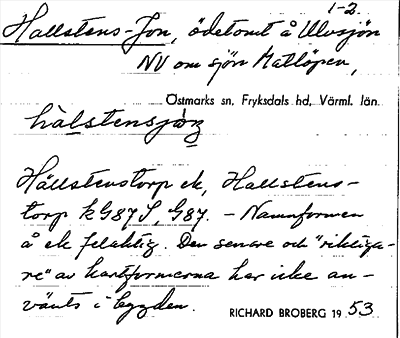 1-2.
Hallstens-Jon, ödetomt å Ulvsjön
NV om sjön Matlöpen,
Östmarks sn, Fryksdals hd, Värml. län.
hàlstensjòn
Hällstenstorp ek, Hallstens-
torp kG87S, G87. – Namnformen
å ek felaktig. Den senare och "riktiga-
re" av kartformerna har icke an-
vänts i bygden.
RICHARD BROBERG 1953